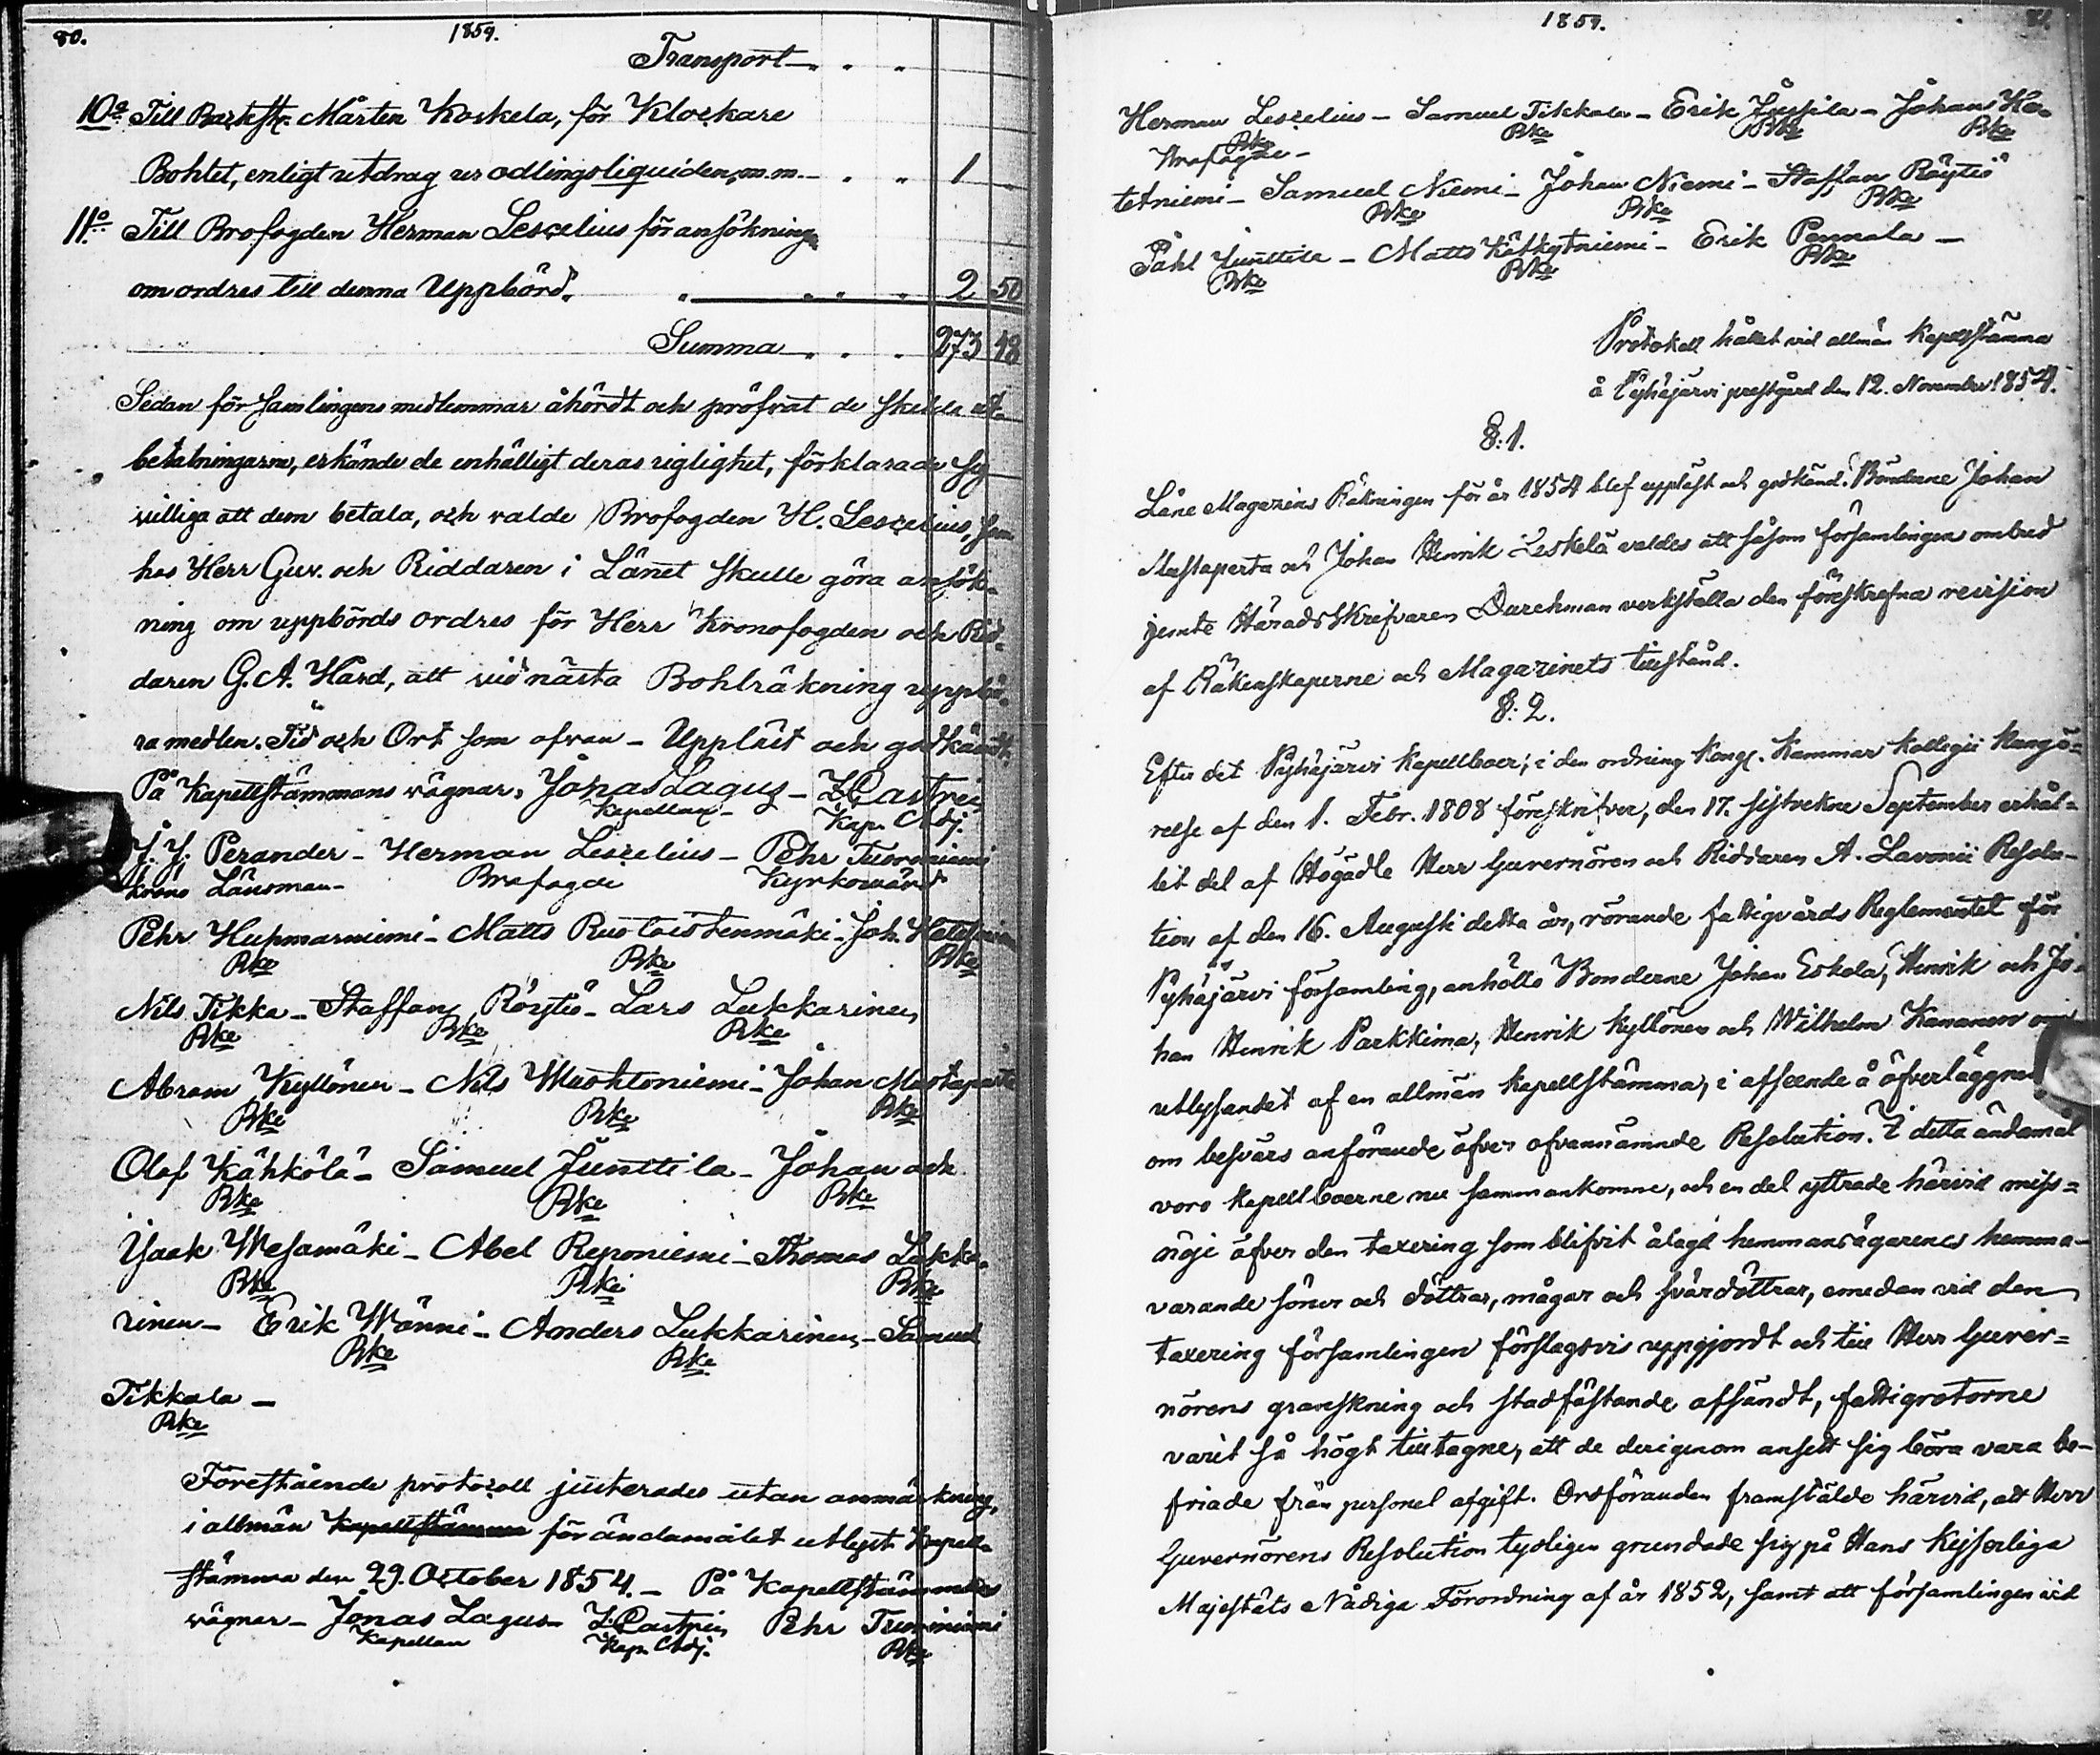 80.
1854.
Transport
10º Till Barkstr. Mårten Koskela, för Klockare
Bohlet, enligt utdrag ur odlingsliquiden, m.m. 1
11º Till Brofogden Herman Lescelius för ansökning
om ordres till denna Uppbörd. 2 50
Summa 273 48
Sedan församlingens medlemmar åhördt och pröfvat de skilda ut-
betalningarne, erkände de enhälligt deras riglighet, förklarade sig
villiga att dem betala, och valde Brofogden H. Lescelius, som
hos Herr Guv. och Riddaren i Länet skulle göra ansök-
ning om uppbörds ordres för Herr Kronofogden och Rid-
daren G. A. Hård, att vid nästa Bohlräkning uppbä-
ra medlen. Tid och Ort som ofvan - Uppläst och godkändt.
På Kapellstämmans vägnar. Jonas Lagus - Z. Castrén
Kapellan - Kap. Adj.
J. J. Perander - Herman Lescelius - Pehr Tuorminiemi
Krono Länsman - Brofogde Kyrkovärd
Pehr Hupmarniemi - Matts Ruotoistenmäki - Joh.
Bke Bke Bke
Nils Tikka - Staffan Röytiö - Lars Lukkarinen
Bke Bke Bke
Abram Kyllönen - Nils Mushtoniemi - Johan Mustaperta
Bke Bke Bke
Olof Kähkölä - Samuel Junttila - Johan och
Bke Bke Bke
Isaak Mesamäki - Abel Reponiemi - Thomas Lukka-
Bke Bke Bke
rinen - Erik Männi - Anders Lukkarinen - Samuel
Bke Bke
Tikkala -
Bke
Förestående protocoll justerades utan anmärkning,
i allmän kapellstämma för ändamålet utlyst Kapell-
stämma den 29. October 1854. - På Kapellstämmans
vägnar - Jonas Lagus Z. Castrén Pehr Tuorminiemi
Kapellan Kap. Adj. Bke
1854.
81.
Herman Lescelius - Samuel Tikkala - Erik Jussila - Johans Ha-
Brofogde - Bke Bke Bke
tetniemi - Samuel Niemi - Johan Niemi - Staffan Röytiö
Bke Bke Bke
Påhl Junttila - Matts Kätkytniemi - Erik Pennala -
Bke Bke Bke
Protokoll hållet vid allmän Kapellstämma
å Pyhäjärvi prestgård den 12. November 1854.
§: 1.
Låne Magazins Räkningen för år 1854 blef uppläst och godkänd. Bönderne Johan
Mustaperta och Johan Henrik Leskelä valdes att såsom församlingens ombud
jemte Häradsskrifvaren Durchman verkställa den föreskrefna revision
af Räkenskaperne och Magazinets tillstånd.
§: 2.
Efter det Pyhäjärvi Kapellboer, i den ordning Kongl. Kammar Kollegii Kungö-
relse af den 1. Febr. 1808 föreskrifver, den 17. sistvekne September erhål-
lit del af Högädle Herr Guvernören och Riddaren A. Lavonii Resolu-
tion af den 16. Augusti detta år, rörande fattigvårds Reglementet för
Pyhäjärvi församling, anhöllo Bönderne Johan Eskola, Henrik och Jo-
han Henrik Parkkima, Henrik Kyllönen och Wilhelm Kananen om
utlysandet af en allmän Kapellstämma, i afseende å öfverläggning
om besvärs anförande öfver ofvannämnde Resolution. I detta ändamål
voro kapellboerne nu sammankomne, och en del yttrade härvid miss-
nöje öfver den taxering som blifvit ålagd hemmansägarenes hemma-
varande söner och döttrar, mågar och svärdöttrar, emedan vid den
taxering församlingen förslagsvis uppgjordt och till Herr Guver-
nörens granskning och stadfästande afsändt, fattigrotorne
varit så högt tilltagne, att de derigenom ansett sig böra vara be-
friade från personel afgift. Ordföranden framstälde härvid, att Herr
Guvernörens Resolution tydligen grundade sig på Hans Kejserliga
Majestäts Nådiga Förordning af år 1852, samt att församlingen vid